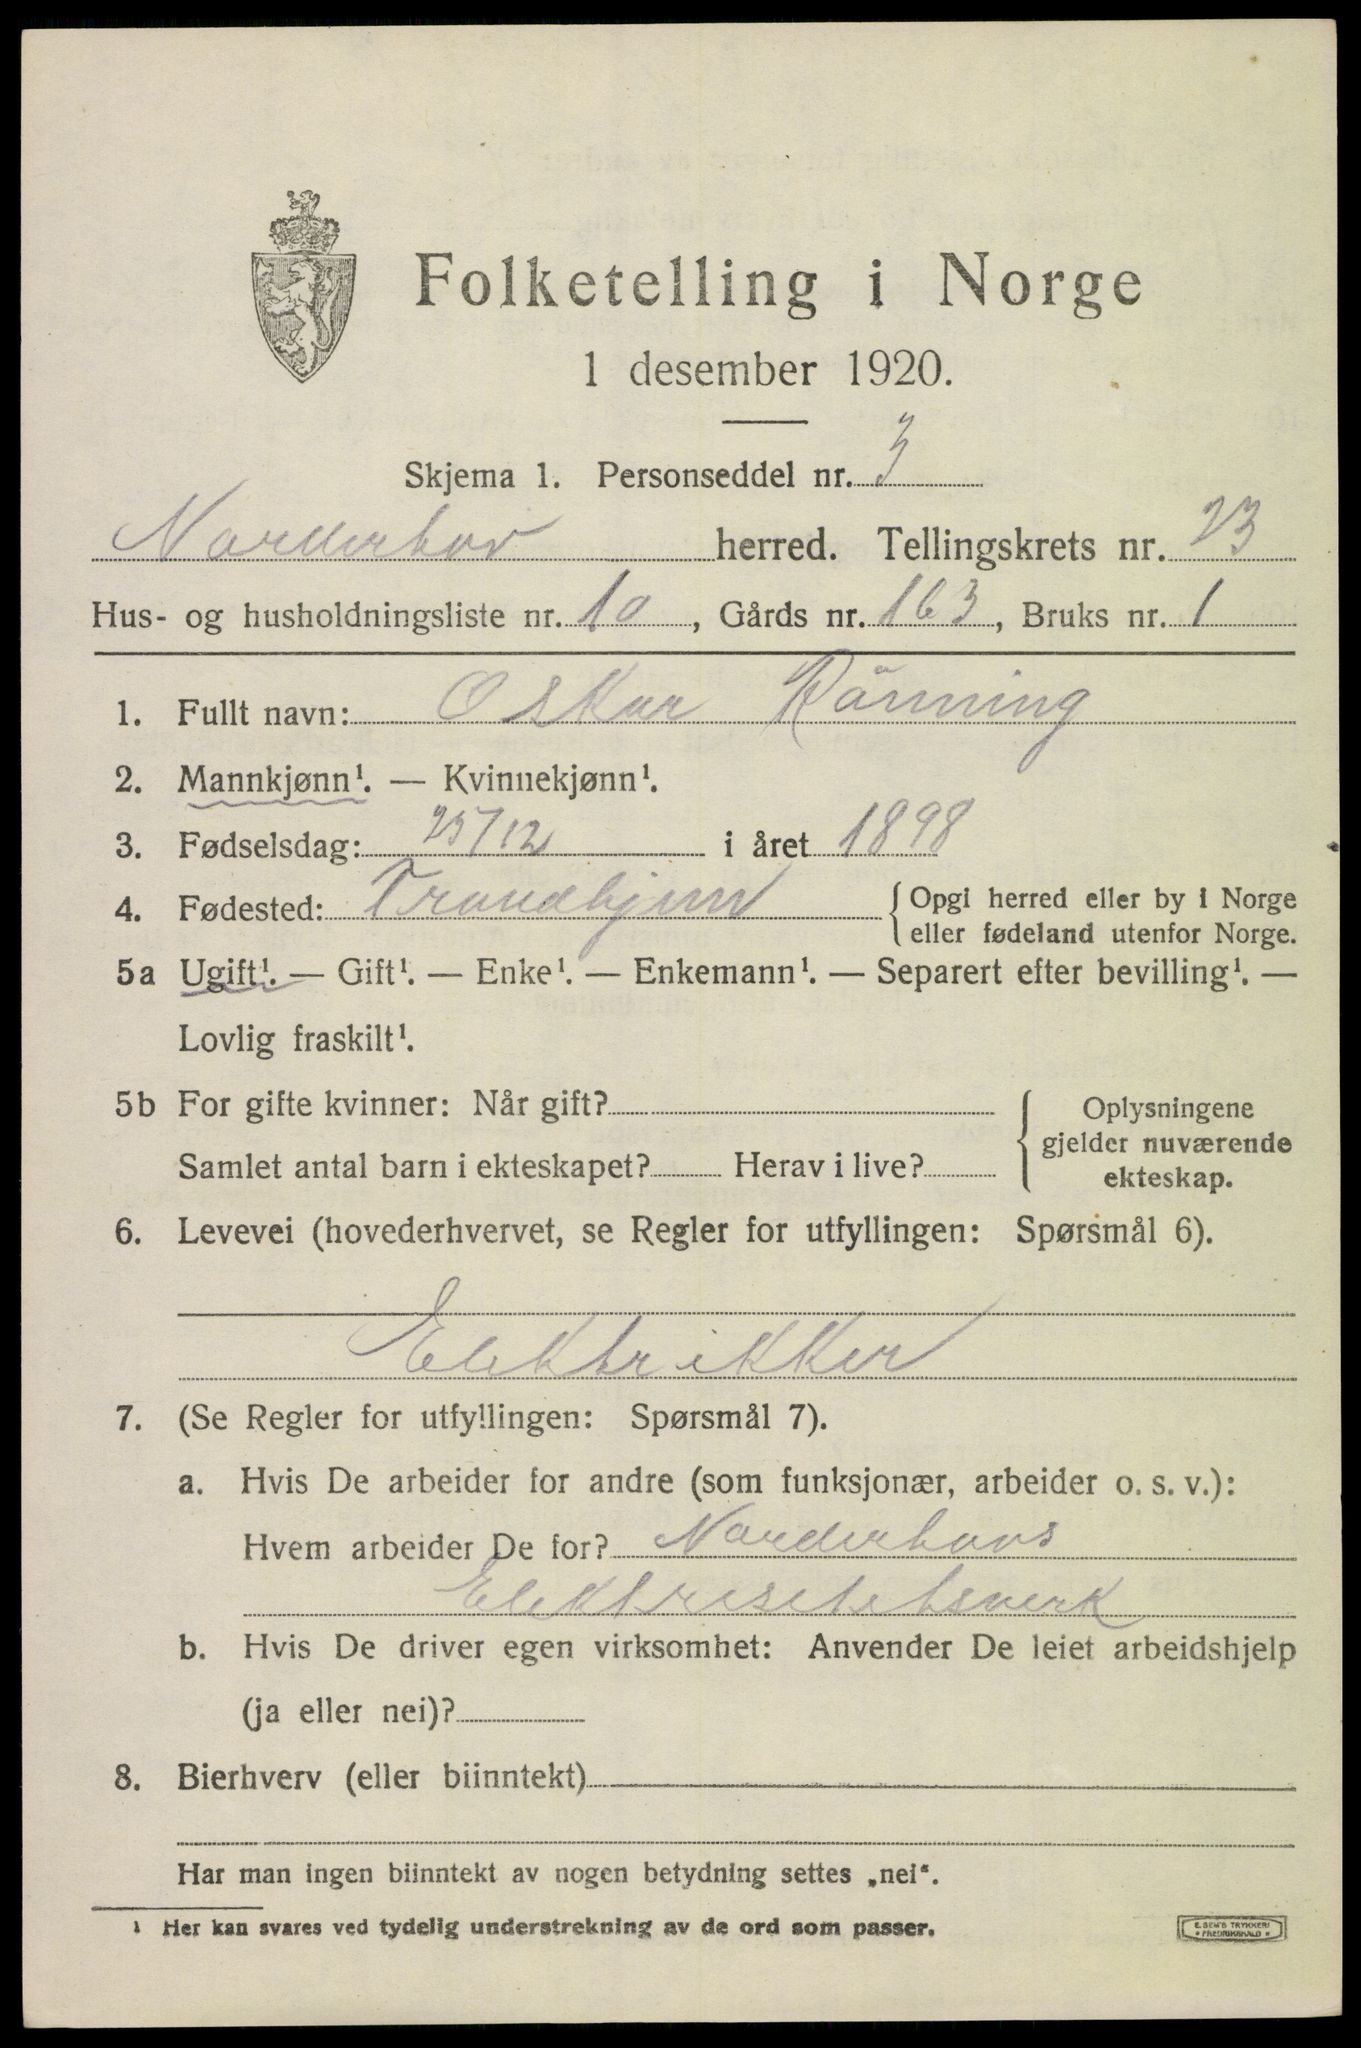 Folketelling i Norge
1 desember 1920.
Skjema 1. Personseddel nr. 3
Norderhov herred. Tellingskrets nr. 23
Hus- og husholdningsliste nr. 10, Gårds nr. 163, Bruks nr. 1
1. Fullt navn: Oskar Rönning
2. Mannkjønn¹. — Kvinnekjønn¹.
3. Fødselsdag: 25/12 i året 1898
4. Fødested: Trondhjem { Opgi herred eller by i Norge
eller fødeland utenfor Norge.
5a Ugift¹. — Gift¹. — Enke¹. — Enkemann¹. — Separert efter bevilling¹. —
Lovlig fraskilt¹.
5b For gifte kvinner: Når gift? { Oplysningene
gjelder nuværende
Samlet antal barn i ekteskapet? Herav i live? ekteskap.
6. Levevei (hovederhvervet, se Regler for utfyllingen: Spørsmål 6).
Elektrikker
7. (Se Regler for utfyllingen: Spørsmål 7).
a. Hvis De arbeider for andre (som funksjonær, arbeider o. s. v.):
Hvem arbeider De for? Norderhovs
Elektrisitetsverk
b. Hvis De driver egen virksomhet: Anvender De leiet arbeidshjelp
(ja eller nei)?
8. Bierhverv (eller biinntekt)
Har man ingen biinntekt av nogen betydning settes „nei“.
¹ Her kan svares ved tydelig understrekning av de ord som passer.
E. SEM'S TRYKKERI
* FREDRIKSHALD *